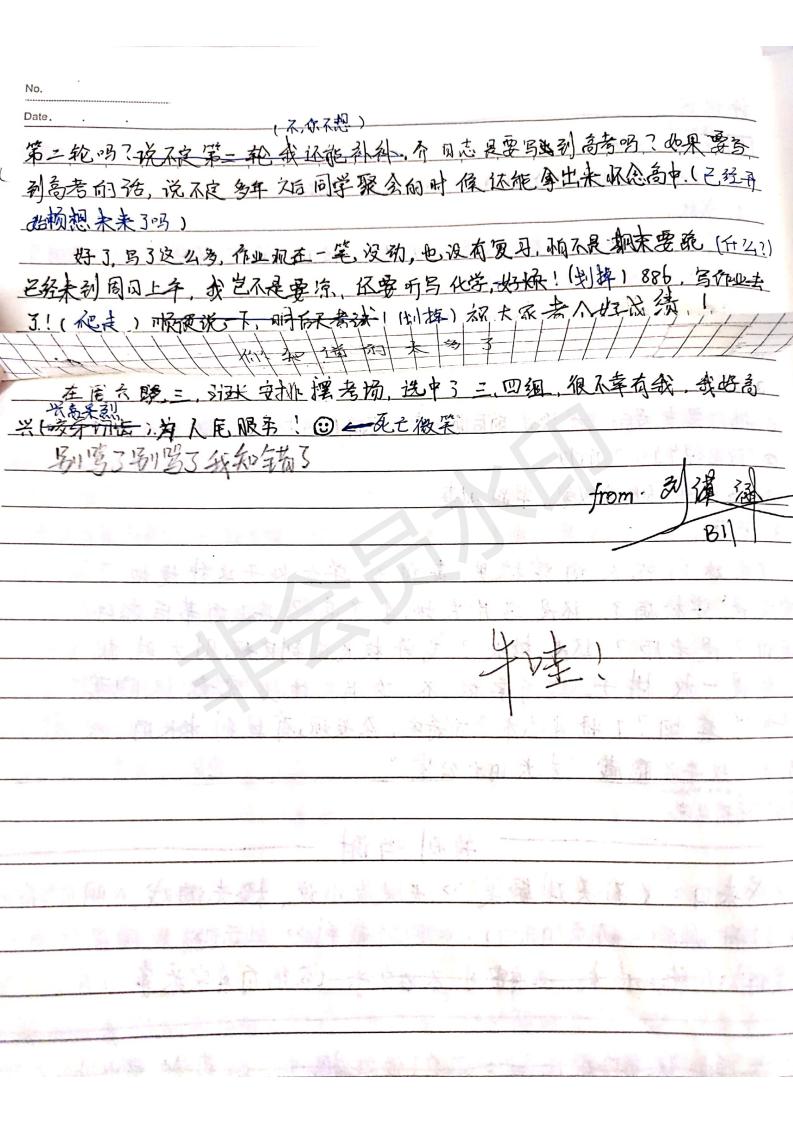 No.
Date.
(不,你不想)
第二轮吗?说不定第二轮我还能补补。齐日志是要写到高考吗?如果要写
到高考的话,说不定多年之后同学聚会的时候还能拿出来怀念高中。(已经开
始畅想未来了吗)
好了,写了这么多,作业现在一笔没动,也没有复习,怕不是期末要跪(什么?)
已经来到周日上午,我岂不是要凉,还要听写化学,好烦!(划掉)886,写作业去
了!(爬走)顺便说一下,明后天考试!(划掉)祝大家考个好成绩!!
你知道的太多了
在周六晚三,汪长安排摆考场,选中了三、四组,很不幸有我,我好高
兴高采烈
兴(咬牙切齿),为人民服务!←死亡微笑
别骂了别骂了我知错了
from. 刘
B11
牛哇!
非会员水印